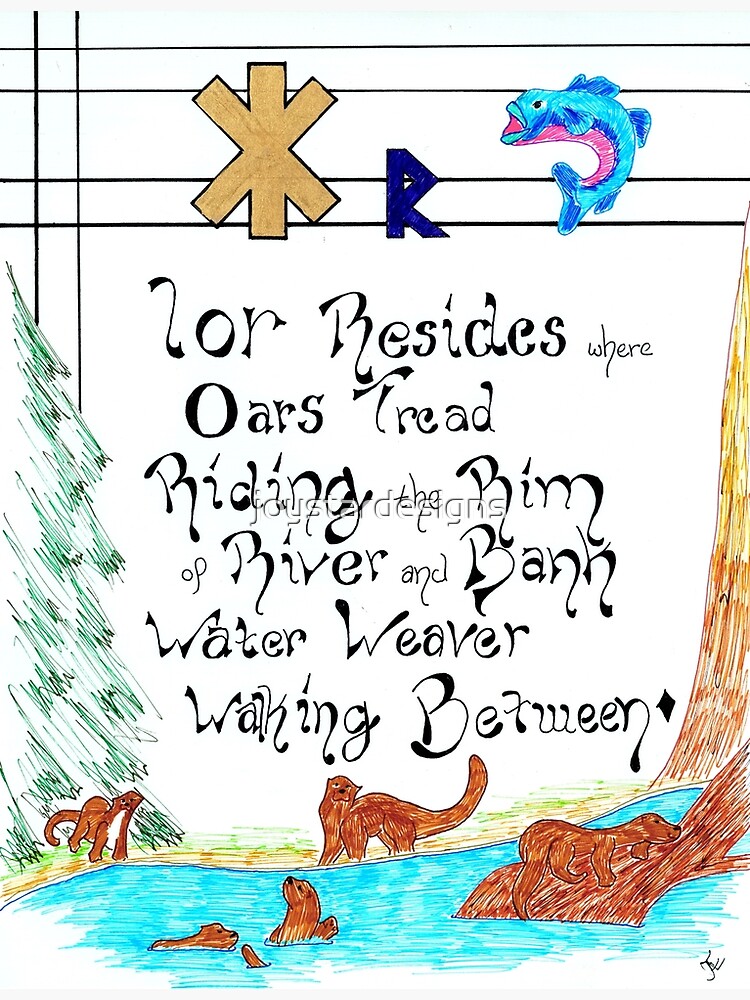 ᛡ ᚱ
Ior Resides where
Oars Tread
Riding the Rim
joystardesigns
of River and Bank
Water Weaver
Waking Between